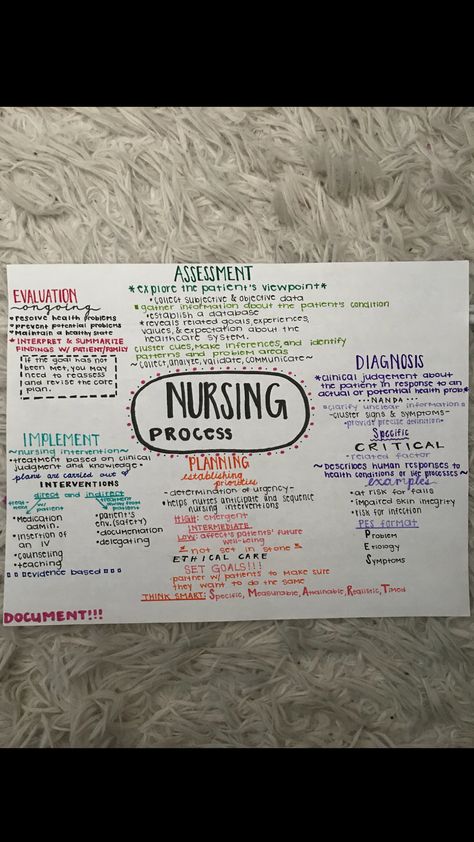 ASSESSMENT
*explore the patient's viewpoint*
•collect subjective & objective data
gather information about the patient's condition
•establish a database
•reveals related goals, experiences,
values, & expectation about the
healthcare system.
cluster cues, make inferences, and identify
patterns and problem areas
~collect, analyze, validate, communicate~
EVALUATION
~ongoing~
•resolve health problems
•prevent potential problems
•Maintain a healthy state
*INTERPRET & SUMMARIZE
FINDINGS W/ PATIENT/FAMILY
If the goal has not
been met, you may
need to reassess
and revise the care
plan.
NURSING
PROCESS
DIAGNOSIS
*clinical judgement about
the patient in response to an
actual or potential health prob
...NANDA...
~clarify unclear information
~cluster signs & symptoms~
•provide precise definition•
Specific
CRITICAL
~related factor
~Describes human responses to
health conditions or life processes~
examples
•at risk for falls
•impaired skin integrity
•risk for infection
PES format
Problem
Etiology
Symptoms
IMPLEMENT
~nursing intervention~
•treatment based on clinical
judgment and knowledge•
plans are carried out
INTERVENTIONS
direct and indirect
treatment
•Medication
admin
•insertion of
an IV
•counseling
•teaching
•patient's
env. (safety)
•documentation
•delegating
evidence based
PLANNING
establishing
priorities
-determination of urgency-
•helps nurses anticipate and sequence
nursing interventions
High: emergent
INTERMEDIATE
Low: affect's patients' future
well-being
*not set in stone*
ETHICAL CARE
SET GOALS!!!
partner w/ patients to make sure
they want to do the same
THINK SMART: Specific, Measurable, Attainable, Realistic, Timed
DOCUMENT!!!